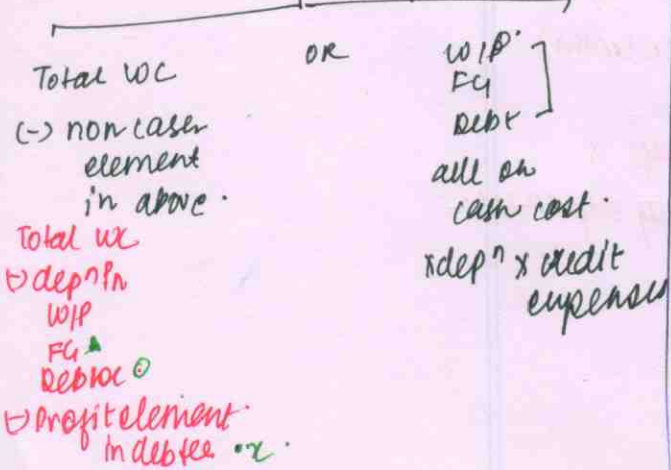 Total WC
(-) non cash
element
in above.
Total WC
(-) depn in
WIP
FG
Debtor
(-) Profit element
in debtee x.
OR
WIP
FG
Debt
all on
cash cost.
xdepn x credit
expenses